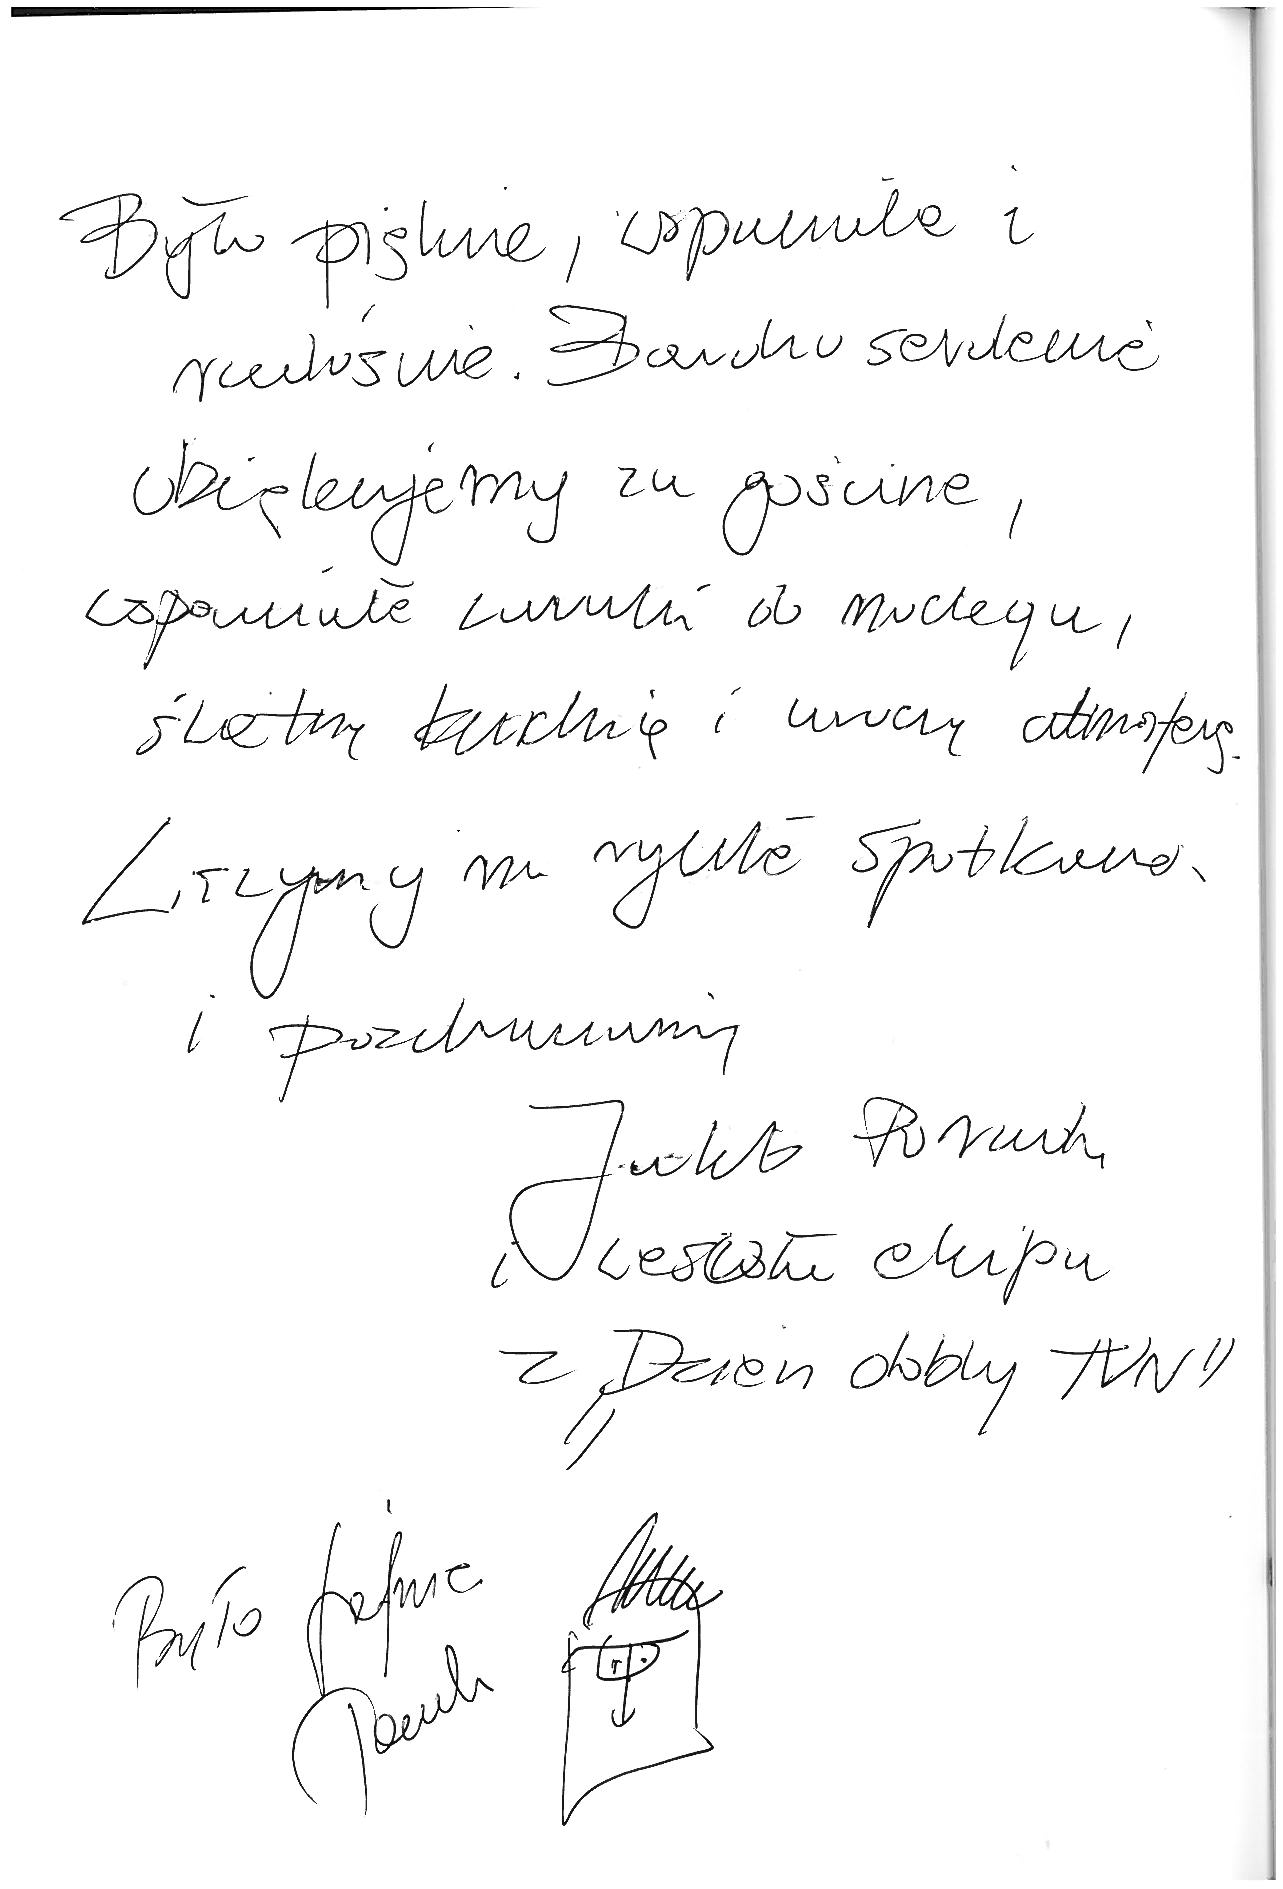 Było pięknie, wspaniale i
radośnie. Bardzo serdecznie
dziękujemy za gościnę,
wspaniałe warunki do noclegu,
świetną kuchnię i uroczą atmosferę.
Liczymy na rychłe spotkanie
i pozdrawiamy
Jakub Porada
i wesoła ekipa
z „Dzień dobry TVN”
Było fajnie